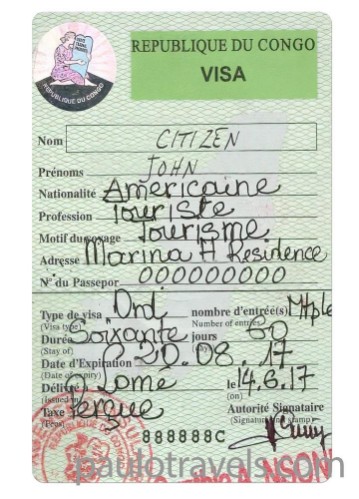 REPUBLIQUE DU CONGO
VISA
REPUBLIQUE DU CONGO
Nom CITIZEN
Prénoms JOHN
Nationalité Americaine
Profession Touriste
Motif du voyage Tourisme
Adresse Marina H Residence
N° du Passepor 000000000
Type de visa Ord nombre d'entrée(s) Mtple
(Visa type) Number of entry
Durée Soixante jours 60
(Stay of)
Date d'Expiration 20.08.17
(Date of expiry)
Délivré Lomé le 14.6.17
(Issued in) (on)
Taxe Perçue Autorité Signataire
(Fees) (Signature and stamp)
888888C
paulotravels.com